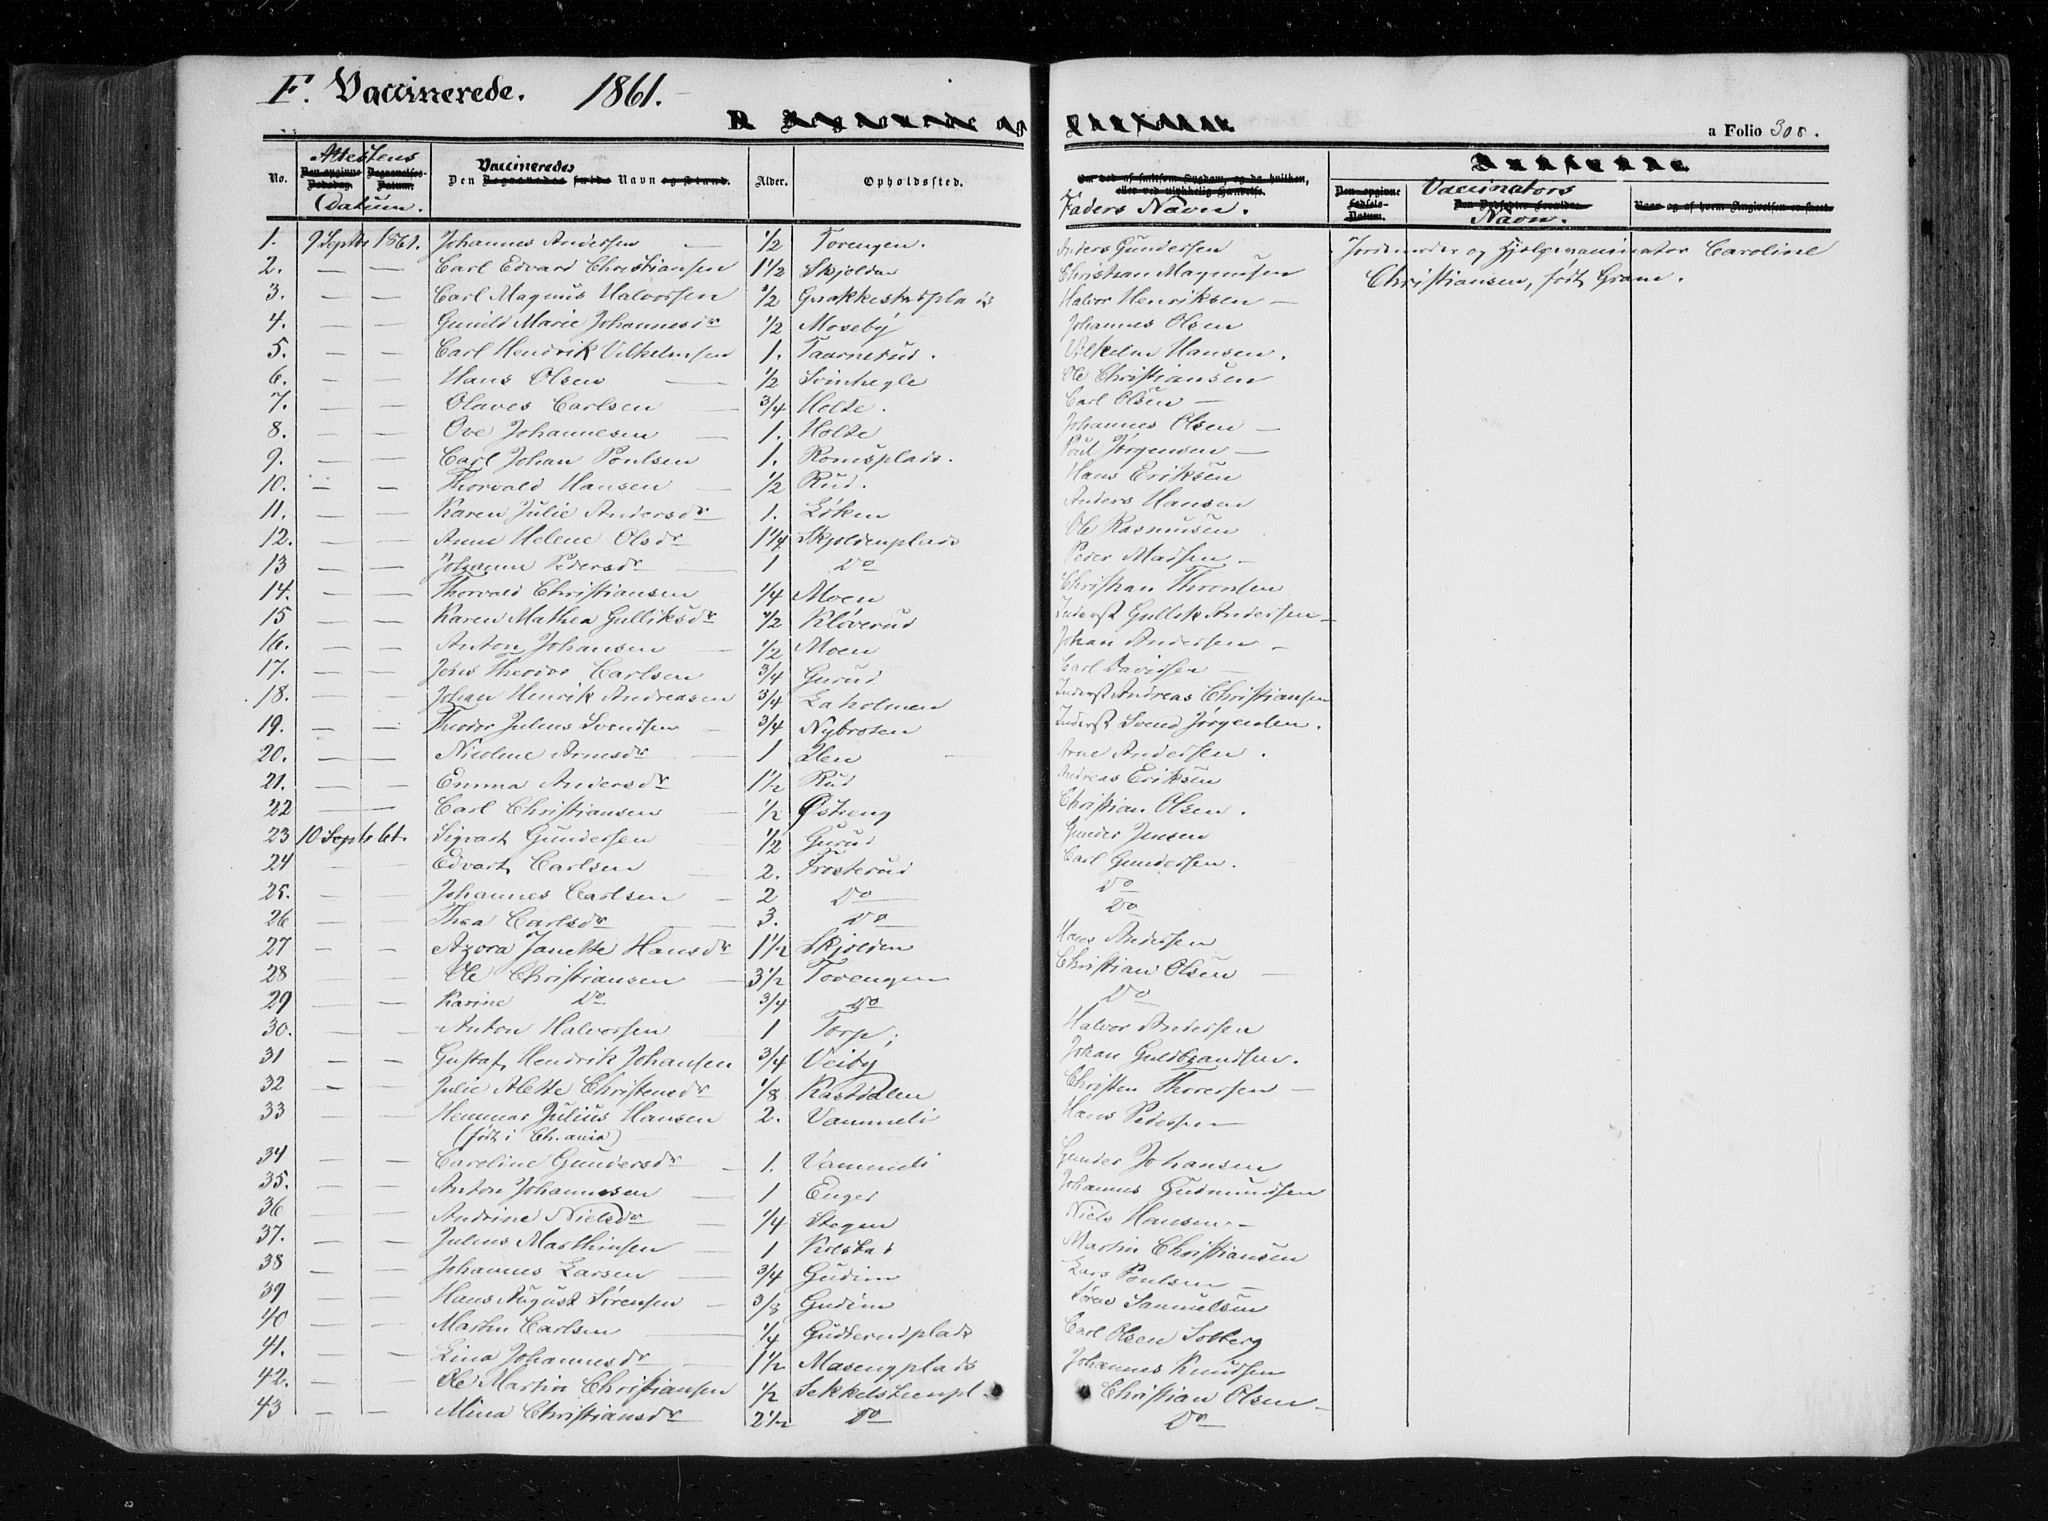 F. Vaccinerede. 1861.
a Folio 308.
No. Attestens Datum. Vaccineredes Den Navn Alder. Opholdssted. Faders Navn. Vaccinators Navn.
1. 9 Septbr 1861. Johannes Andersen — 1/2 Tovengen. Anders Gundersen Jordmoder og Hjelpevaccinator Caroline
2. — — Carl Edvard Christiansen 1 1/2 Skjolden Christian Magnusen Christiansen, født Gram.
3. — — Carl Magnus Halvorsen 1/2 Halvor Henriksen —
4. — — Gunild Marie Johannesdr 1/2 Moseby Johannes Olsen
5. — — Carl Hendrik Vilhelmsen 1. Taarnerud. Vilhelm Hansen.
6. — — Hans Olsen — 1/2 Svinhegle Ole Christiansen
7. — — Olaves Carlsen — 3/4 Holte. Carl Olsen —
8. — — Ove Johannesen — 1. Holte Johannes Olsen —
9. — — Carl Johan Poulsen 1. Romsplads. Poul Jørgensen —
10. — — Thorvald Hansen — 1/2 Rud. Hans Eriksen
11. — — Karen Julie Andersdr 1. Løken Anders Hansen
12. — — Anne Helene Olsdr — 1 1/4 Skjoldenplads Ole Rasmusen
13 — — Johanne Pedersdr — 1 Do Peder Madsen —
14. — — Thorvald Christiansen 1/4 Moen Christian Thronsen
15 — — Karen Mathea Gulliksdr 1/2 Kløverud Inderst Gullik Andersen —
16. — — Anton Johansen — 1/2 Moen Johan Andersen —
17. — — Jens Theodor Carlsen 3/4 Gurud Carl Davidsen —
18. — — Johan Henrik Andreasen 3/4 Laholmen Inderst Andreas Christiansen
19. — — Theodor Julius Svendsen 3/4 Nybroten Inderst Svend Jørgensen.
20. — — Nicoline Arnesdr — 1 Arne Andersen.
21. — — Emma Andersdr 1 1/2 Rud Andreas Eriksen
22 — — Carl Christiansen — 1/2 Østeng Christian Olsen.
23 10 Septbr 61. Sigvart Gundersen — 1/2 Gurud Gunder Jensen
24 — — Edvart Carlsen — 2. Frosterud Carl Gundersen.
25. — — Johannes Carlsen — 2 Do Do
26 — — Thea Carlsdr — 3. Do Do
27 — — Azora Janette Hansdr 1 1/2 Skjolden Hans Andersen
28 — — Ole Christiansen — 3 1/2 Tovengen Christian Olsen —
29 — — Karine Do 3/4 Do Do
30. — — Anton Halvorsen — 1 Torp; Halvor Andersen
31 — — Gustaf Hendrik Johansen 3/4 Veiby Johan Guldbrandsen.
32 — — Julie Alette Christensdr 1/8 Kastdalen Christen Thoresen —
33 — — Hemmar Julius Hansen 2. Vammeli Hans Pedersen —
(født i Ch.ania) —
34 — — Caroline Gundersdr — 1. Vammeli Gunder Johansen
35. — — Anton Johannesen — 1 Enger Johannes Gudmundsen
36 — — Andrine Nielsdr — 1/4 Stegen Niels Hansen —
37. — — Julius Marthinsen — 1 Kolstad Martin Christiansen
38 — — Johannes Larsen — 3/4 Gudim Lars Poulsen —
39 — — Hans August Sørensen — 3/8 Gudim Søren Samuelsen
40 — — Martin Carlsen — 1/4 Carl Olsen Solberg
41. — — Lina Johannesdr — 1 1/2 Masengplads Johannes Knudsen
42. — — Ole Martin Christiansen 1/2 Sekkelstenpl. Christian Olsen —
43 — — Mina Christiansdr 2 1/2 Do Do